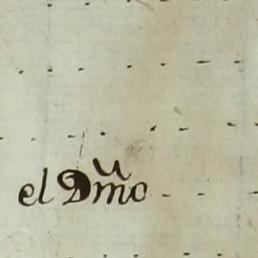 el Dmo